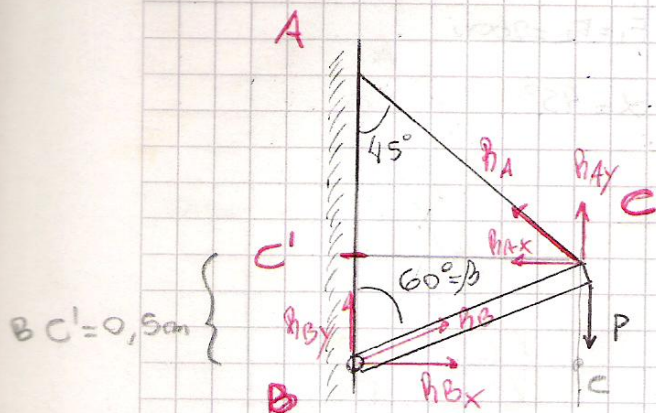 A
45°
RA
RAY
C
C'
RAX
60°=β
BC'=0,5cm
RBY
RB
P
C
B
RBX